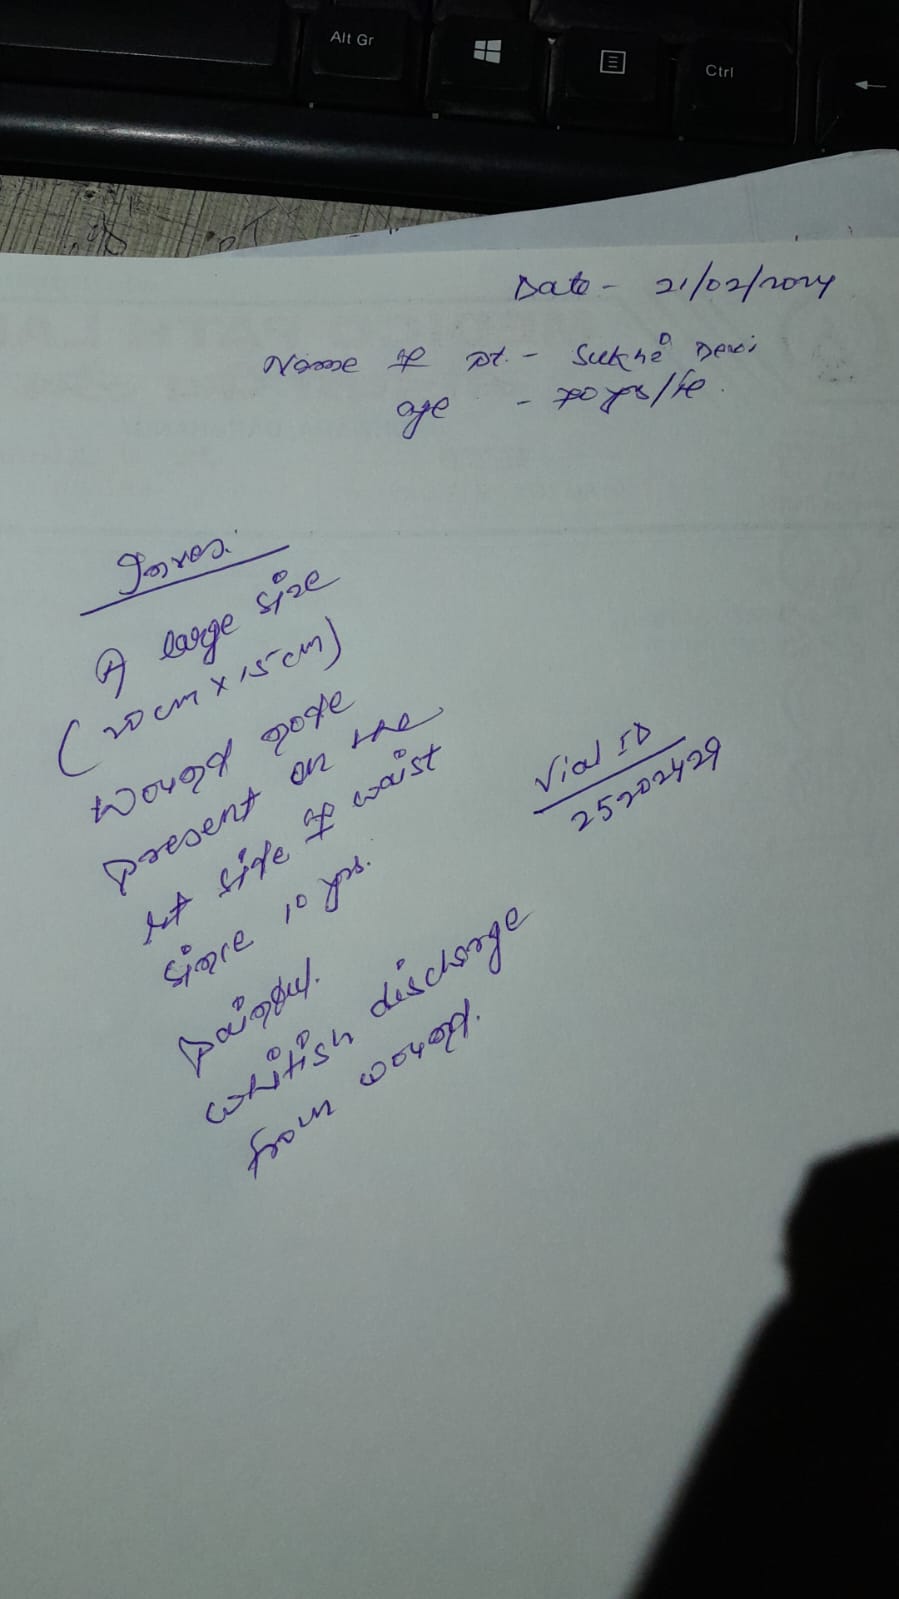 Alt Gr
Ctrl
Date - 21/02/2024
Name of pt. - Sukhi Devi
age - 70 yrs/Fe.
A large size
(20 cm x 15 cm)
wound
present on the
Lt side of waist
since 10 yrs.
painful.
whitish discharge
from wound.
Vial ID
25202429